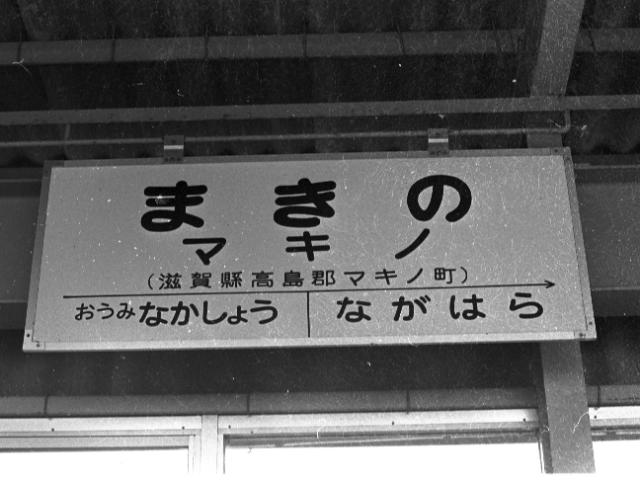 まきの
マキノ
(滋賀縣高島郡マキノ町)
おうみなかしょう ながはら